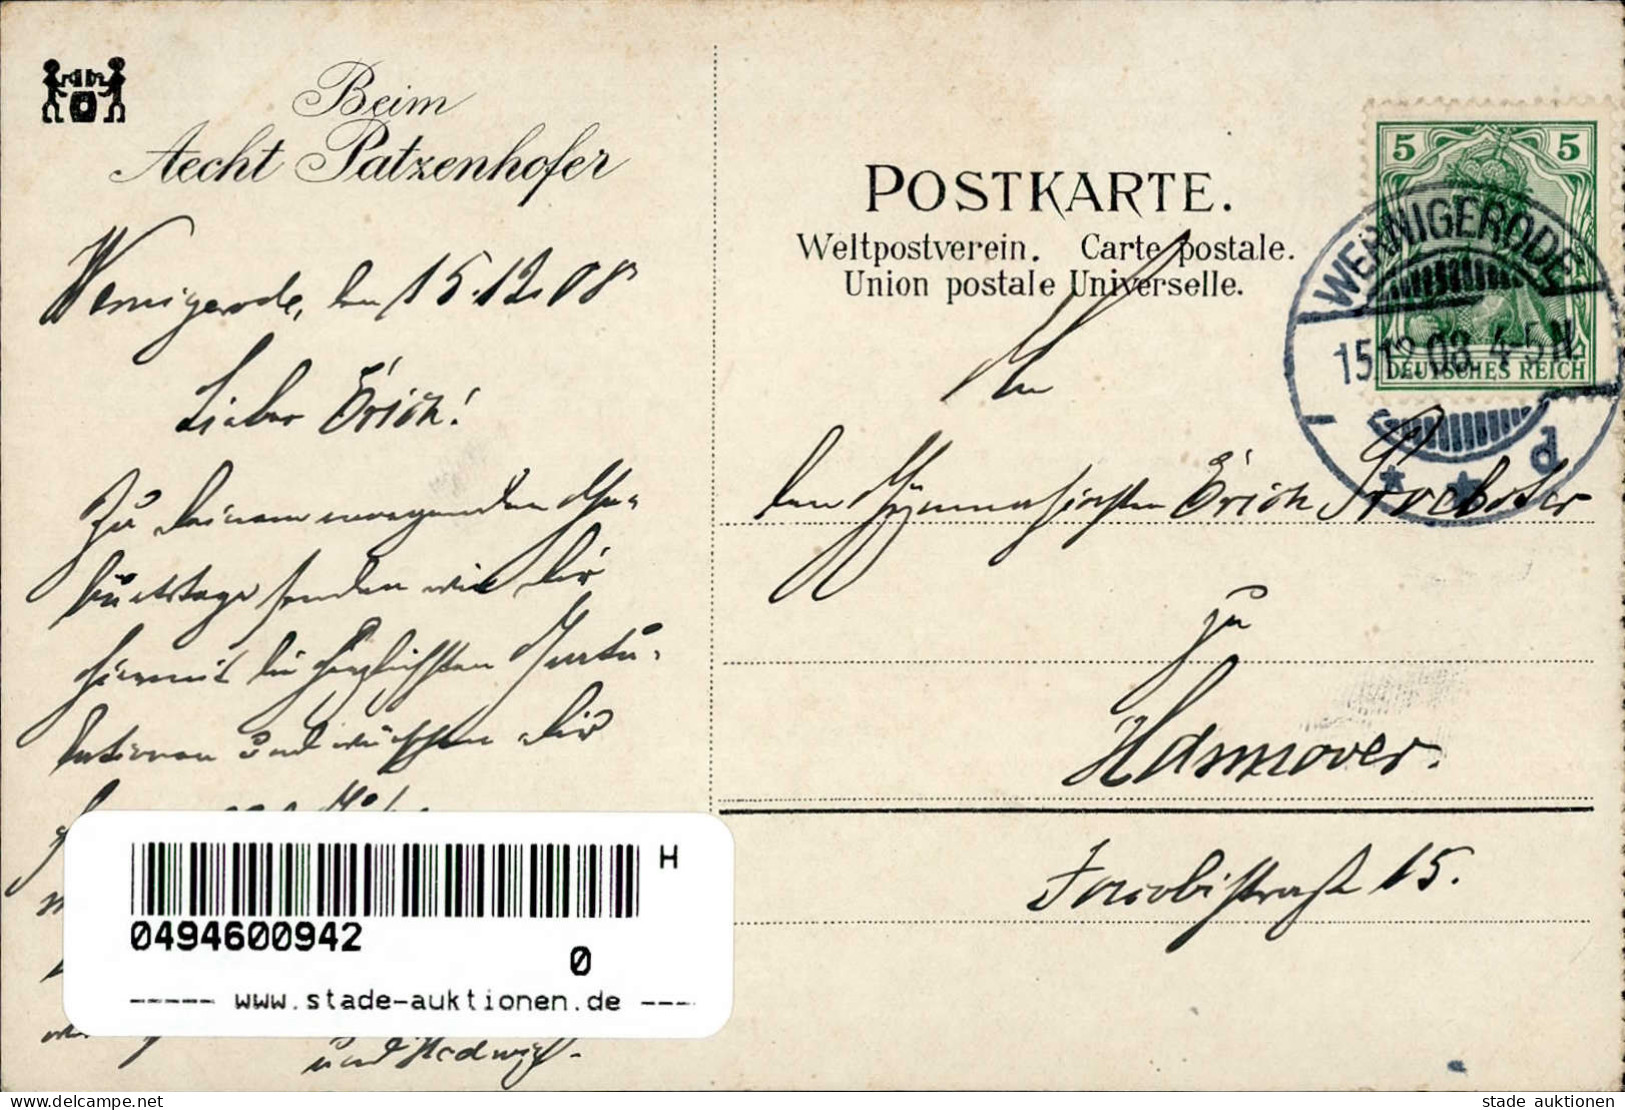 Beim
Aecht Patzenhofer
Wernigerode, den 15.12.08
Lieber Erich!
Zu deinem morgenden Ge-
burtstage senden wir dir
hiermit die herzlichsten Gratu-
lationen und wünschen dir
und Hedwig.
POSTKARTE.
Weltpostverein. Carte postale.
Union postale Universelle.
5 5
DEUTSCHES REICH
WERNIGERODE
15.12.08. 4-5 N
* * d
An
den Gymnasiasten Erich
zu
Hannover.
Jacobistraße 15.
H
0494600942
0
----- www.stade-auktionen.de ----
stade auktionen
delcampe.net